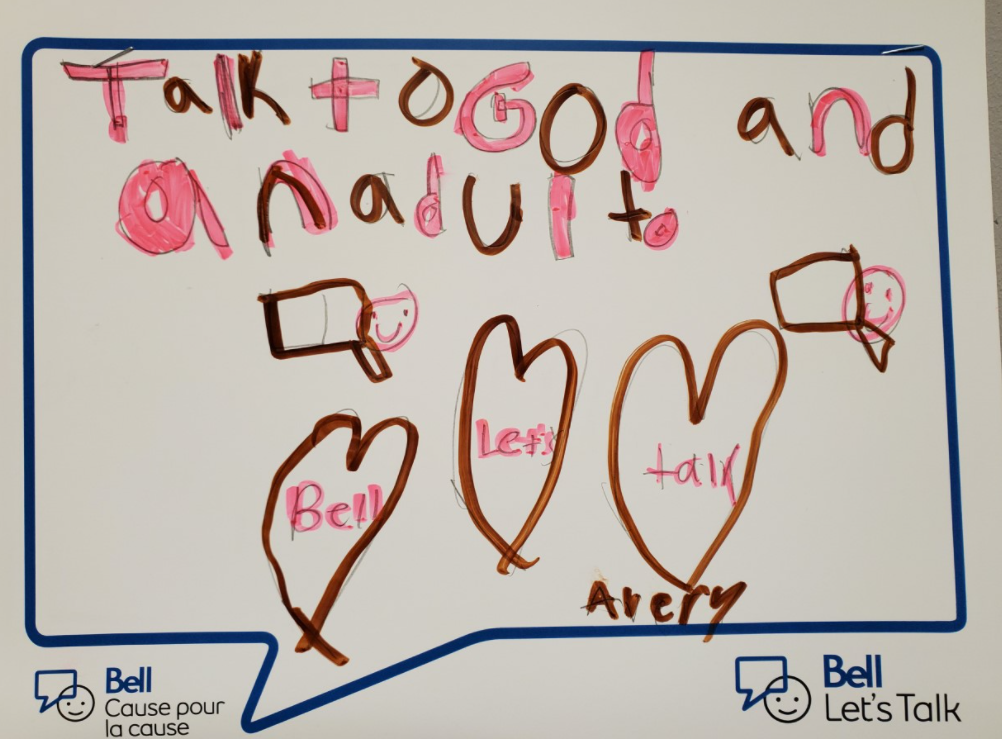 Talk to God and
an adult.
Bell
Let's
talk
Avery
Bell
Cause pour
la cause
Bell
Let's Talk